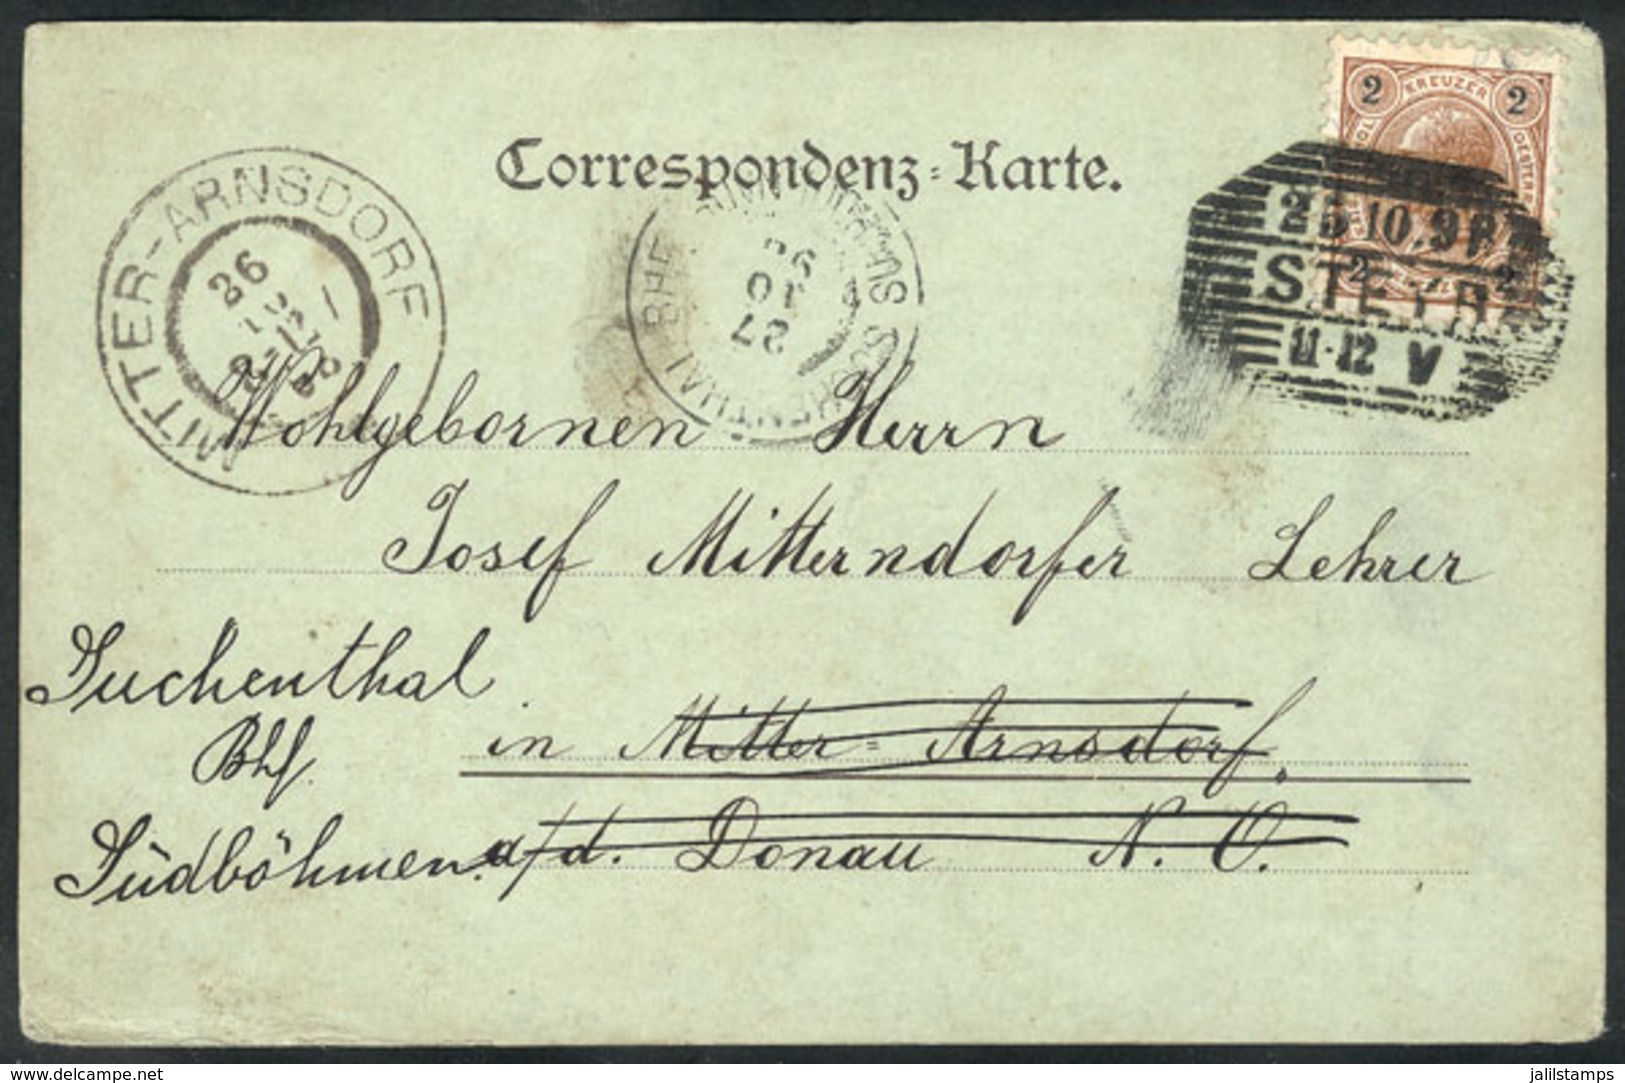 2 KREUZER 2
Correspondenz-Karte.
MITTER-ARNSDORF
26
25.10.98
STEYR
11-12 V
2 2
27
10
98
SUCHENTHAL BHF
Wohlgebornen Herrn
Josef Mitterndorfer Lehrer
Suchenthal
in Mitter-Arnsdorf.
Bhf.
Südböhmen. a/d. Donau N. O.
delcampe.net
jalilstamps